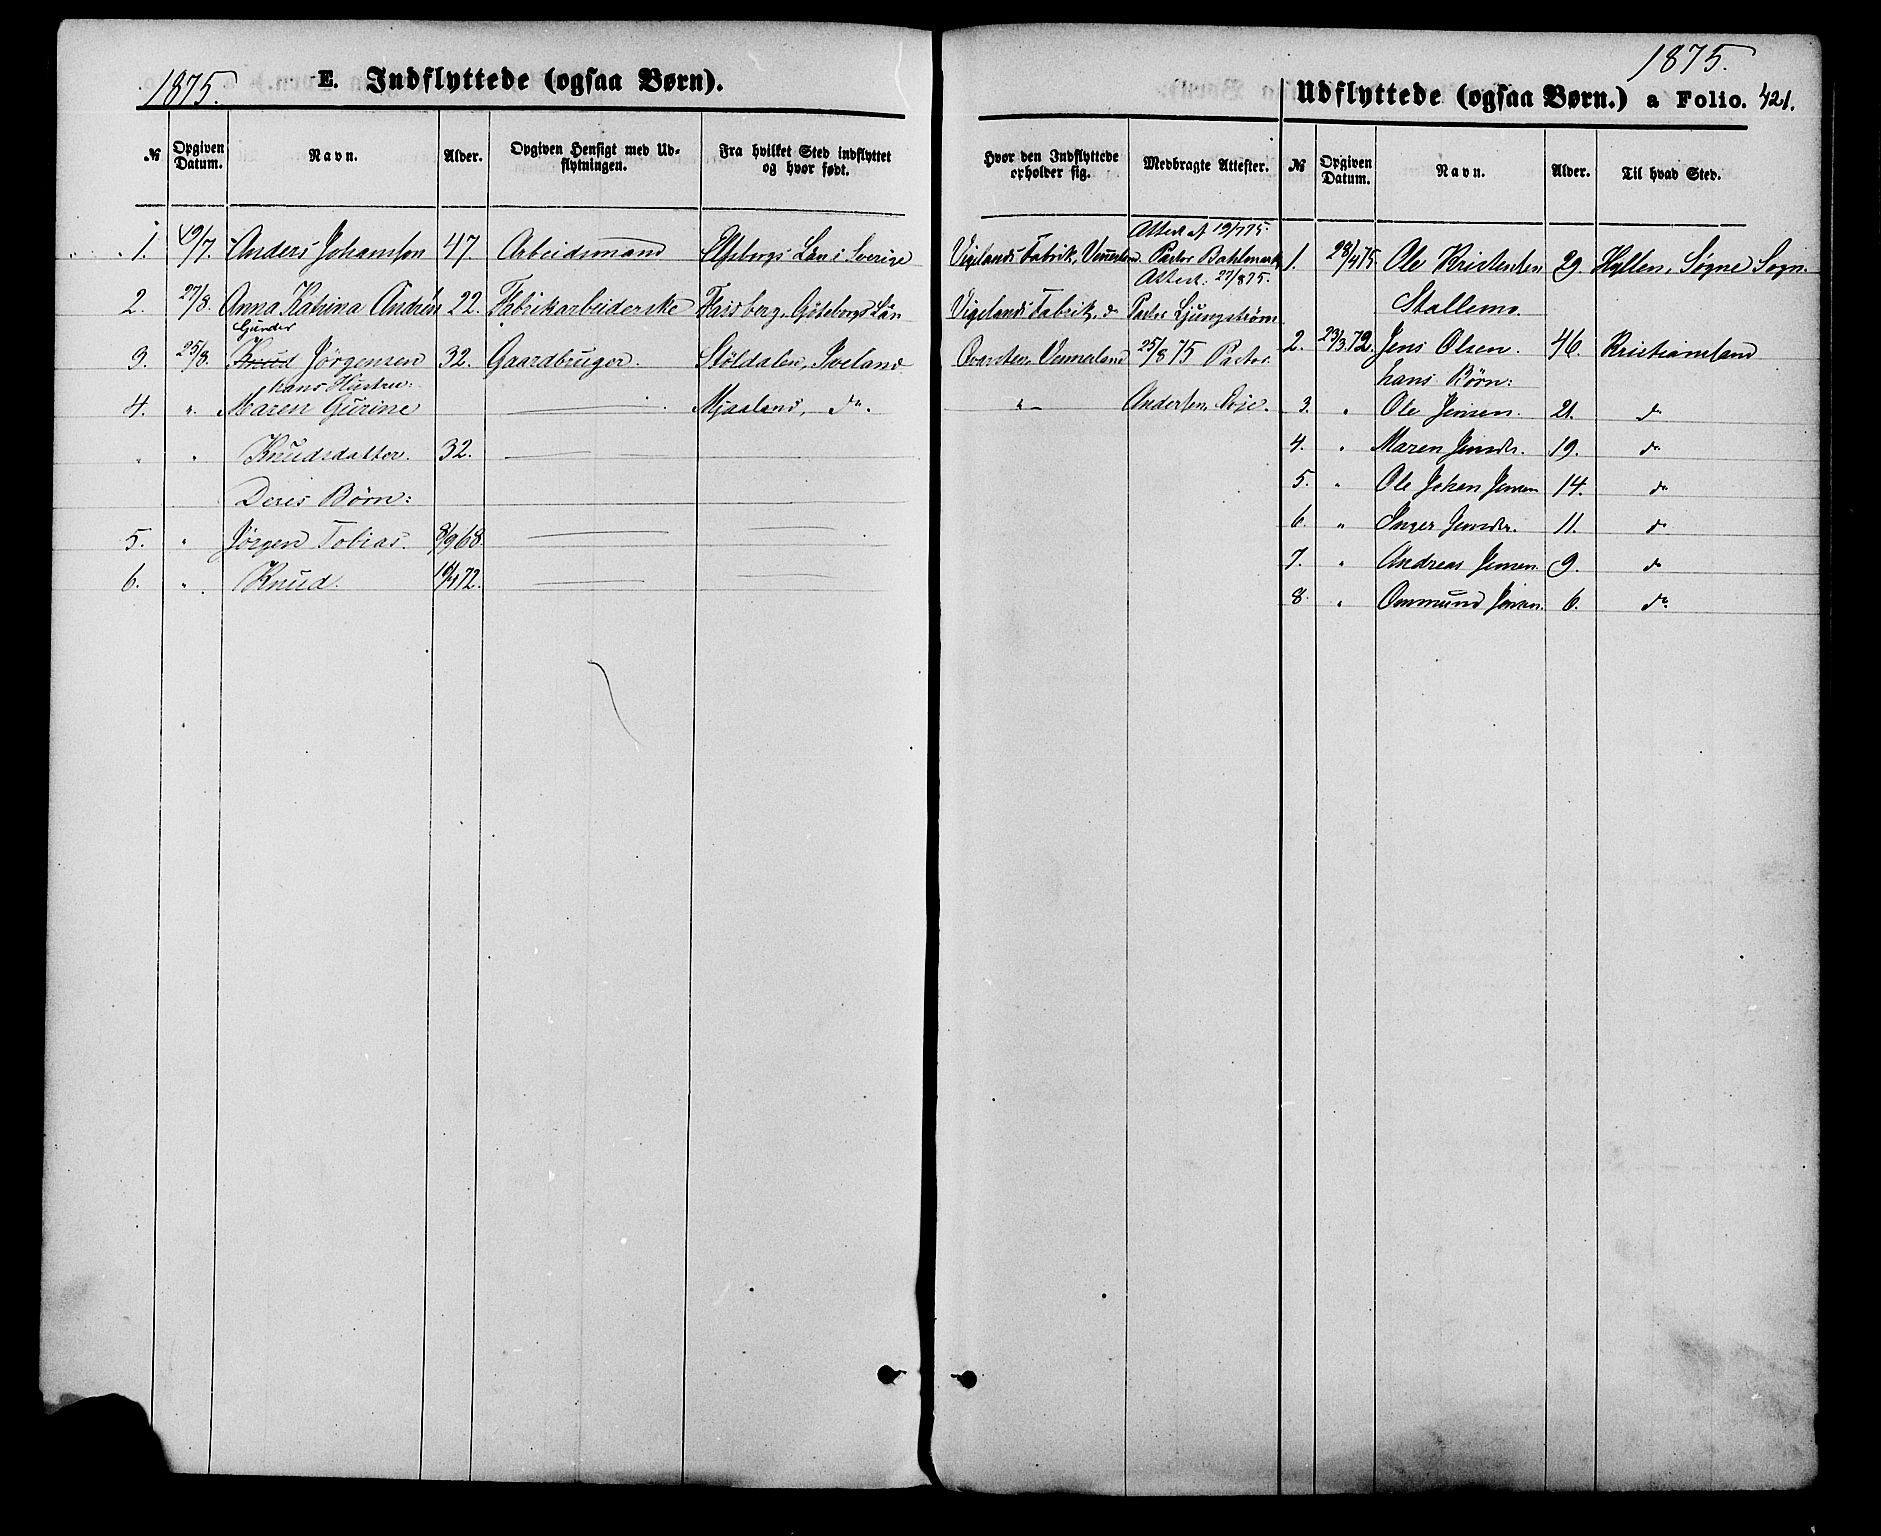 1875.
E. Indflyttede (ogsaa Børn).
№ Opgiven Datum. Navn. Alder. Opgiven Hensigt med Udflytningen. Fra hvilket Sted indflyttet og hvor født.
1. 19/7. Anders Johansson 47. Arbeidsmand Elfsborgs Län i Sverige
2. 27/8. Anna Katrina 22. Fabrikarbeiderske Göteborgs Län
Gunder
3. 25/8. Knud Jörgensen 32. Gaardbruger. Stöldalen, Iveland
hans Hustru:
4. ". Maren Gurine Mjaaland, do.
" " Knudsdatter. 32.
Deres Börn:
5. " Jörgen Tobias. 8/9 68.
6. " Knud. 72.
1875.
Udflyttede (ogsaa Børn.) a Folio. 421.
Hvor den Indflyttede opholder sig. Medbragte Attester. № Opgiven Datum. Navn. Alder. Til hvad Sted.
Attest af 19/7 75.
Vigelands Fabrik, Pastor 1. 28/4 75 Ole Kristensen 29 Hyllen, Søgne Sogn.
Attest. 27/8 75.
Vigelands Fabrik, do Pastor Ljungström Stallemo.
Vennesland 25/8 75 Pastor 2. 23/3. 72. Jens Olsen. 46. Kristianssand
hans Børn:
" Andersen, Evje. 3. " Ole Jensen. 21. do
4. " Maren Jensdr. 19. do
5. " Ole Johan Jensen 14. do
6. " Inger Jensdr. 11. do
7. " Andreas Jensen. 9. do
8. " Ommund Jensen. 6. do.